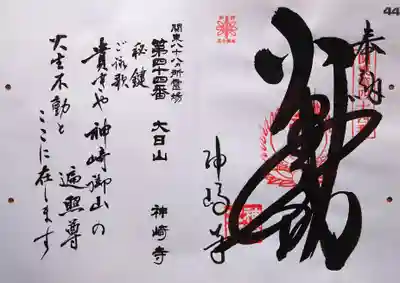 44
奉納
神崎寺
関東八十八ヵ所霊場
第四十四番 大日山 神崎寺
秘鍵
ご詠歌
貴さや神崎御山の
遍照尊
火生不動と
ここに在します